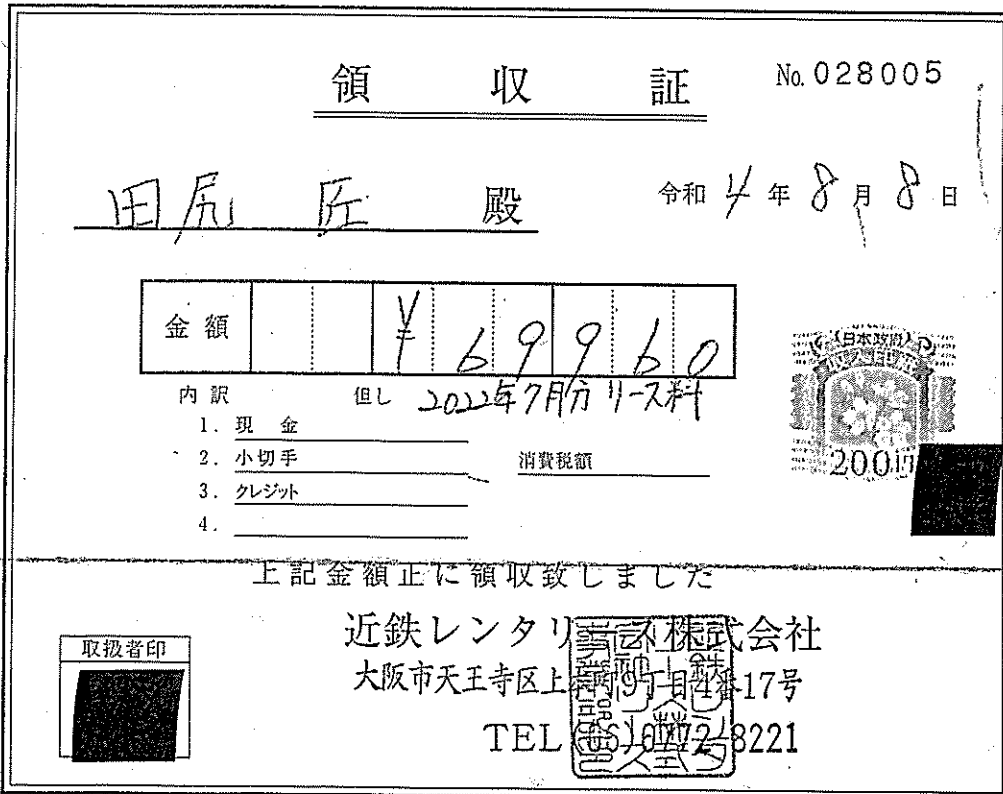 領収証 No. 028005
田尻 匠 殿 令和 4 年 8 月 8 日
金額 ¥69960
内訳 但し 2022年7月分 リース料
1. 現金
2. 小切手 消費税額
3. クレジット
4.
日本政府
収入印紙
200円
上記金額正に領収致しました
取扱者印
近鉄レンタリース株式会社
大阪市天王寺区上本町9丁目4番17号
TEL (06)6772-8221